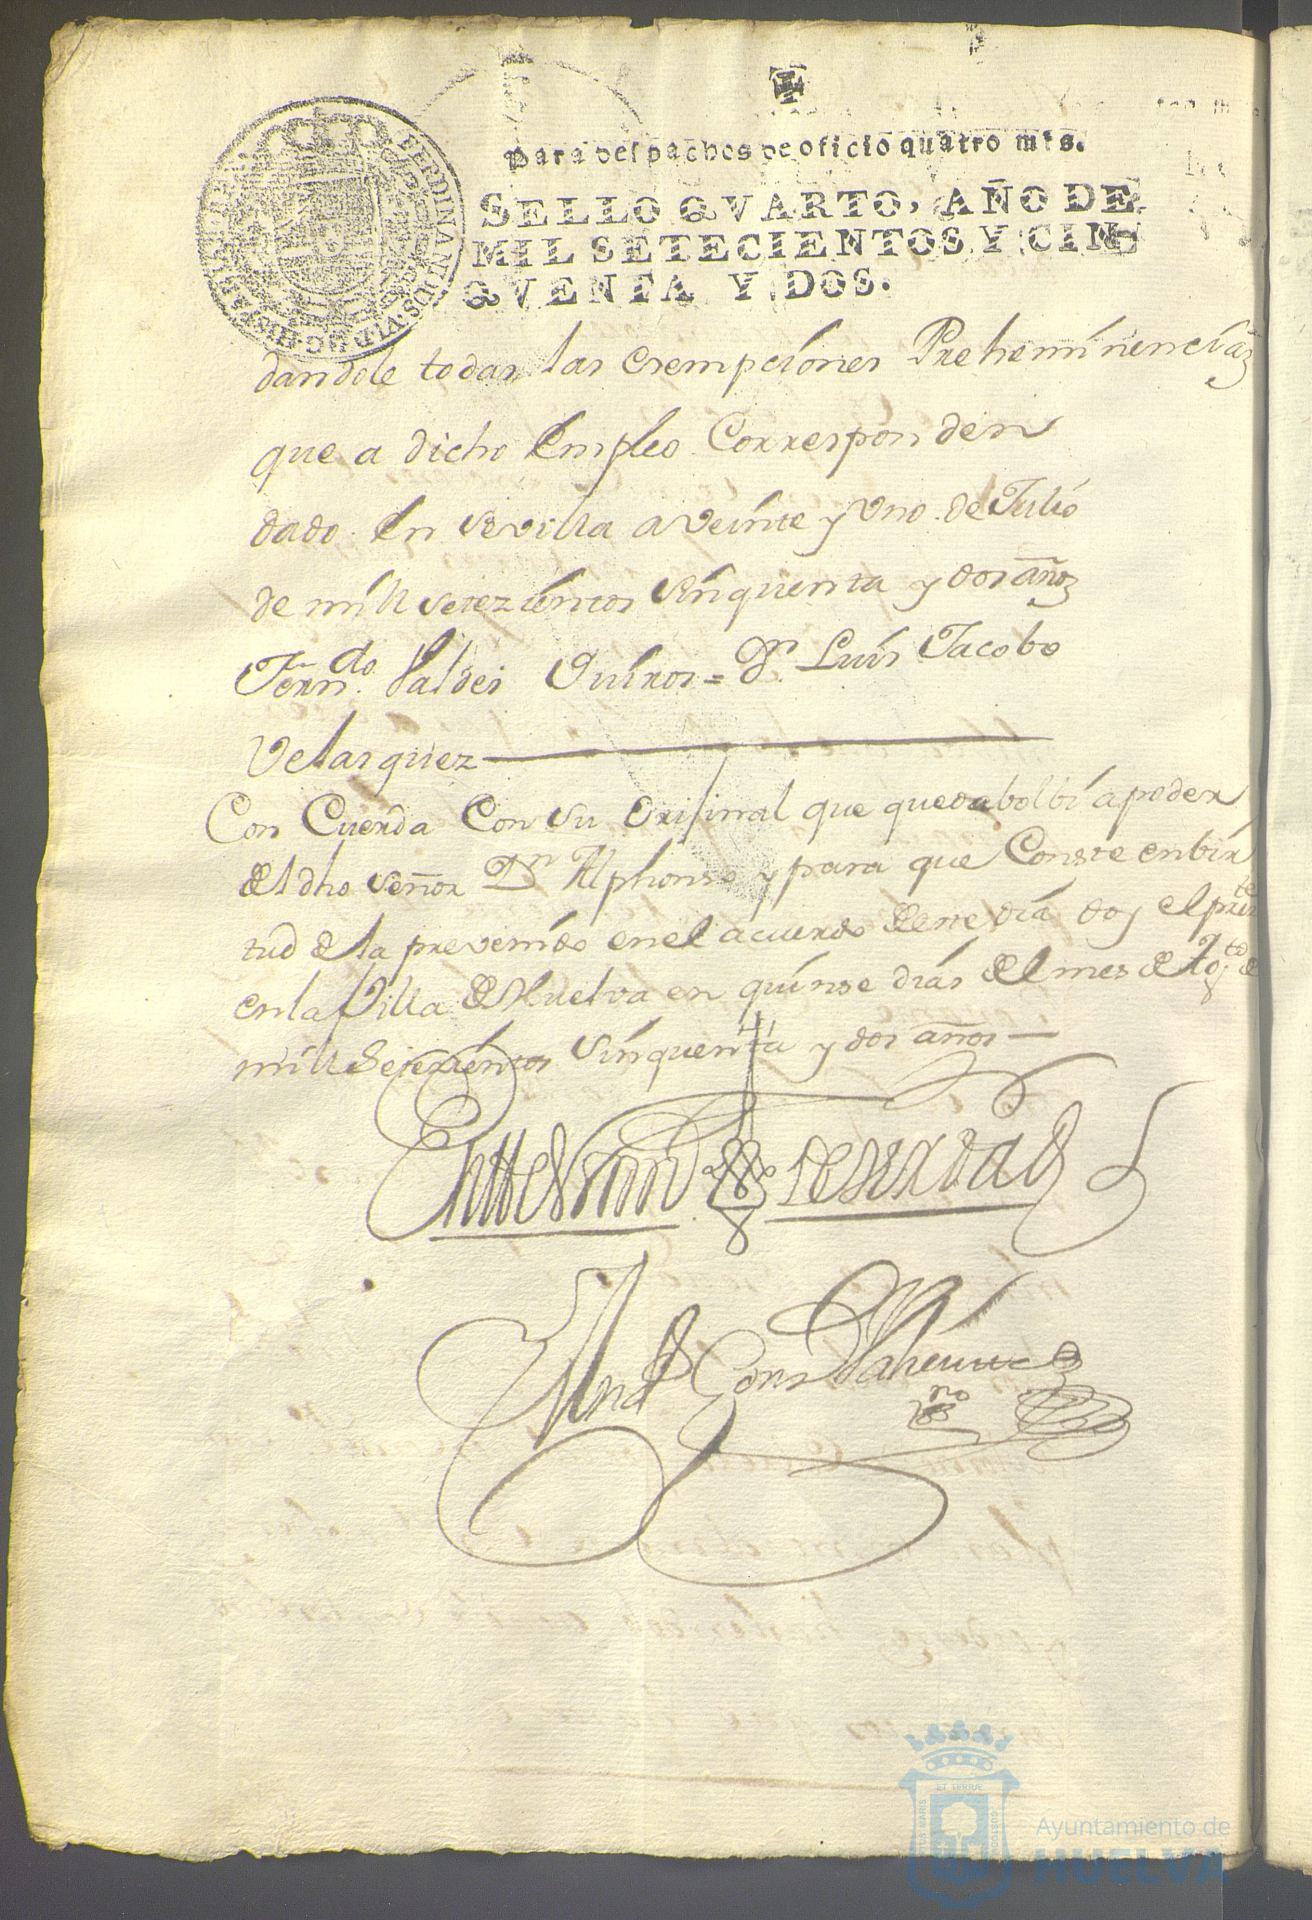 Para despachos de oficio quatro mrs.
SELLO QVARTO, AÑO DE
MIL SETECIENTOS Y CIN
QVENTA Y DOS.
FERDINANDUS·VI·D·G·HISPANIAR
dandole todas las esempciones Preheminencias
que a dicho Empleo Corresponden
dado. En Sevilla a veinte y uno. de Julio
de mill setezientos sinquenta y dos años
Fern.do Valdes Quiros = Dn. Luis Jacobo
Velasquez
Con Cuerda Con su orijinal que queda bolbi a poder
del dho señor Dn Alphonso y para que Conste en bir
tud de la prevenido en el acuerdo de este dia doy el preste
en la Villa de Huelva en quinse dias del mes de Agto de
mill Setezientos sinquenta y dos años
En testimo de verdad
ET TERRAE
Ayuntamiento de
HUELVA